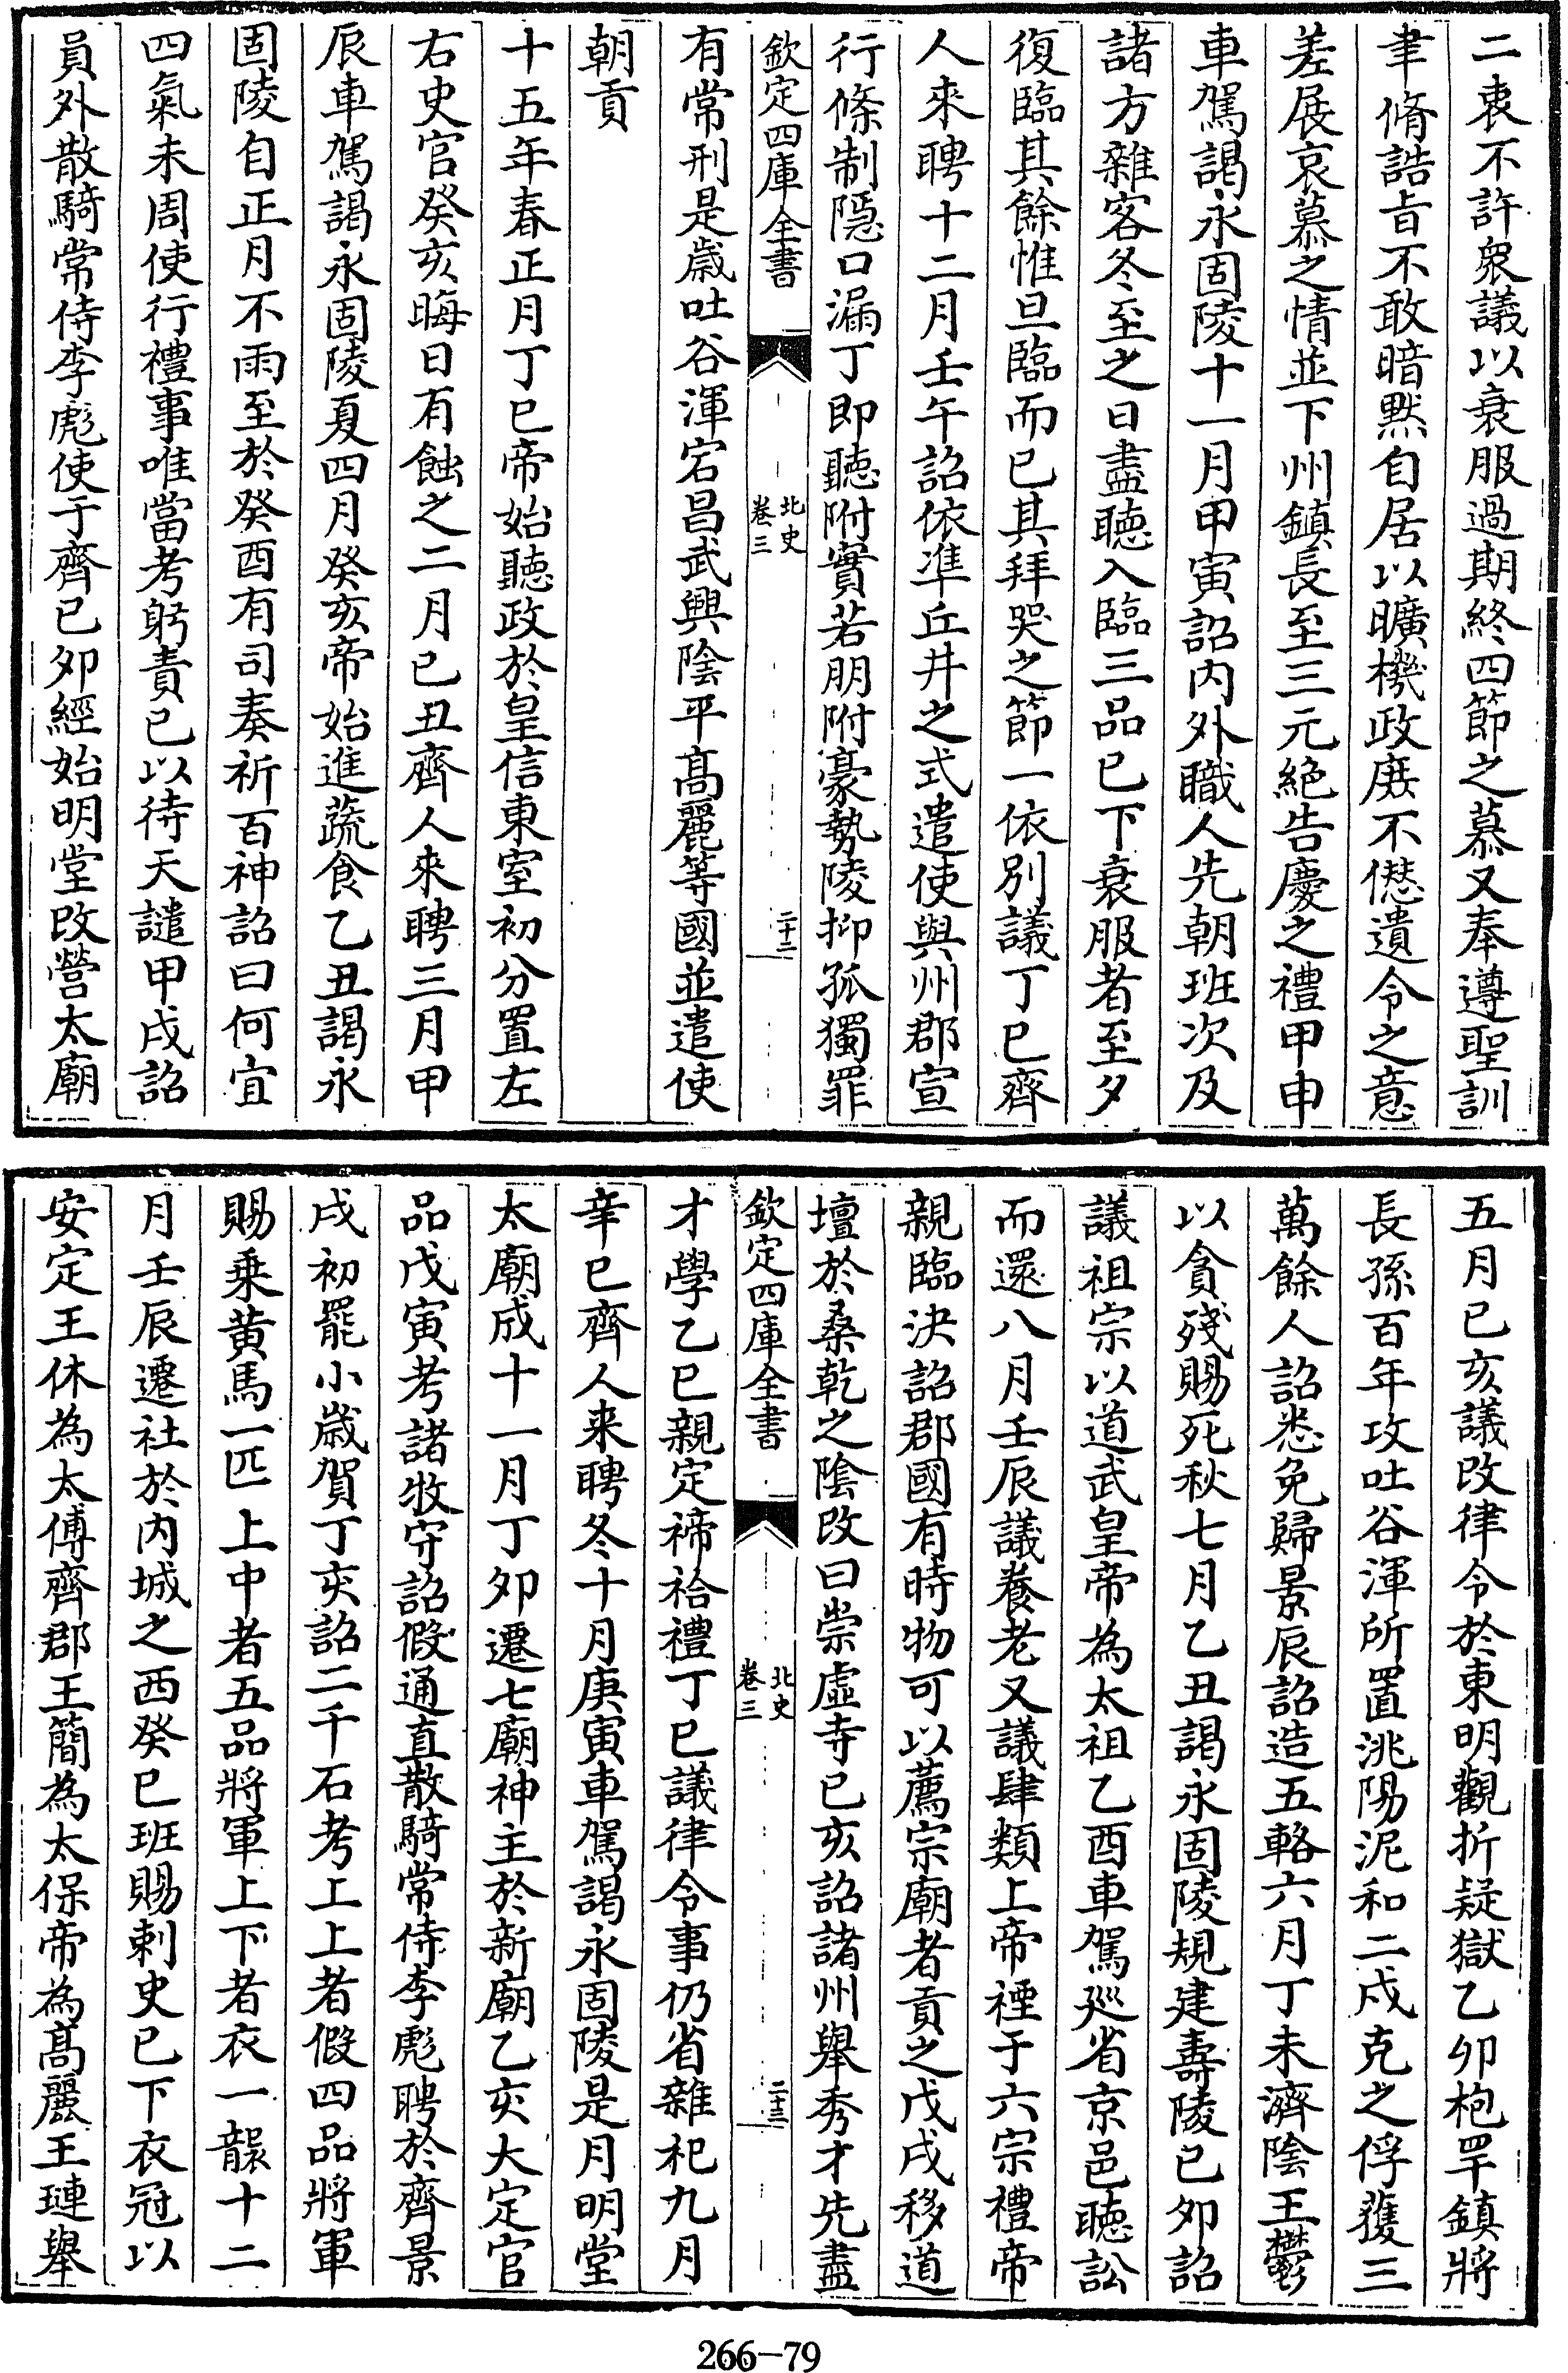 二衷不許衆議以衰服過期終四節之慕又奉遵聖訓
聿脩誥旨不敢暗黙自居以曠機政庻不愆遺令之意
差展哀慕之情並下州鎮長至三元絕告慶之禮甲申
車駕謁永固陵十一月甲寅詔内外職人先朝班次及
諸方雜客冬至之日盡聽入臨三品已下衰服者至夕
復臨其餘惟旦臨而已其拜哭之節一依别議丁巳齊
人來聘十二月壬午詔依準丘井之式遣使與州郡宣
行條制隱口漏丁即聽附實若朋附豪勢陵抑孤獨罪
欽定四庫全書
北史
卷三
二十二
有常刑是歲吐谷渾宕昌武興陰平髙麗等國並遣使
朝貢
十五年春正月丁巳帝始聽政於皇信東室初分置左
右史官癸亥晦日有蝕之二月己丑齊人來聘三月甲
辰車駕謁永固陵夏四月癸亥帝始進蔬食乙丑謁永
固陵自正月不雨至於癸酉有司奏祈百神詔曰何宜
四氣未周使行禮事唯當考躬責已以待天譴甲戌詔
員外散騎常侍李彪使于齊己夘經始明堂改營太廟
五月己亥議改律令於東明觀折疑獄乙卯枹罕鎮將
長孫百年攻吐谷渾所置洮陽泥和二戍克之俘獲三
萬餘人詔悉免歸景辰詔造五輅六月丁未濟陰王鬱
以貪殘賜死秋七月乙丑謁永固陵規建壽陵己夘詔
議祖宗以道武皇帝為太祖乙酉車駕廵省京邑聽訟
而還八月壬辰議養老又議肆類上帝禋于六宗禮帝
親臨決詔郡國有時物可以薦宗廟者貢之戊戌移道
壇於桑乾之陰改曰崇虚寺己亥詔諸州舉秀才先盡
欽定四庫全書
北史
卷三
二十三
才學乙巳親定禘祫禮丁巳議律令事仍省雜祀九月
辛巳齊人來聘冬十月庚寅車駕謁永固陵是月明堂
太廟成十一月丁夘遷七廟神主於新廟乙亥大定官
品戊寅考諸牧守詔假通直散騎常侍李彪聘於齊景
戌初罷小歲賀丁亥詔二千石考上上者假四品將軍
賜乗黄馬一匹上中者五品將軍上下者衣一襲十二
月壬辰遷社於内城之西癸巳班賜刺史已下衣冠以
安定王休為太傅齊郡王簡為太保帝為髙麗王璉舉
266-79